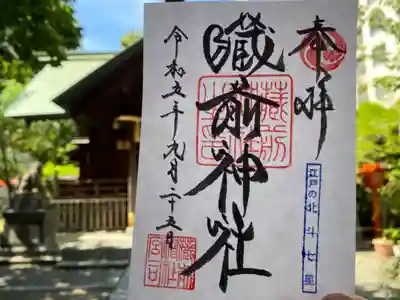 奉拝
藏前神社
令和五年九月二十五日
江戸の北斗七星